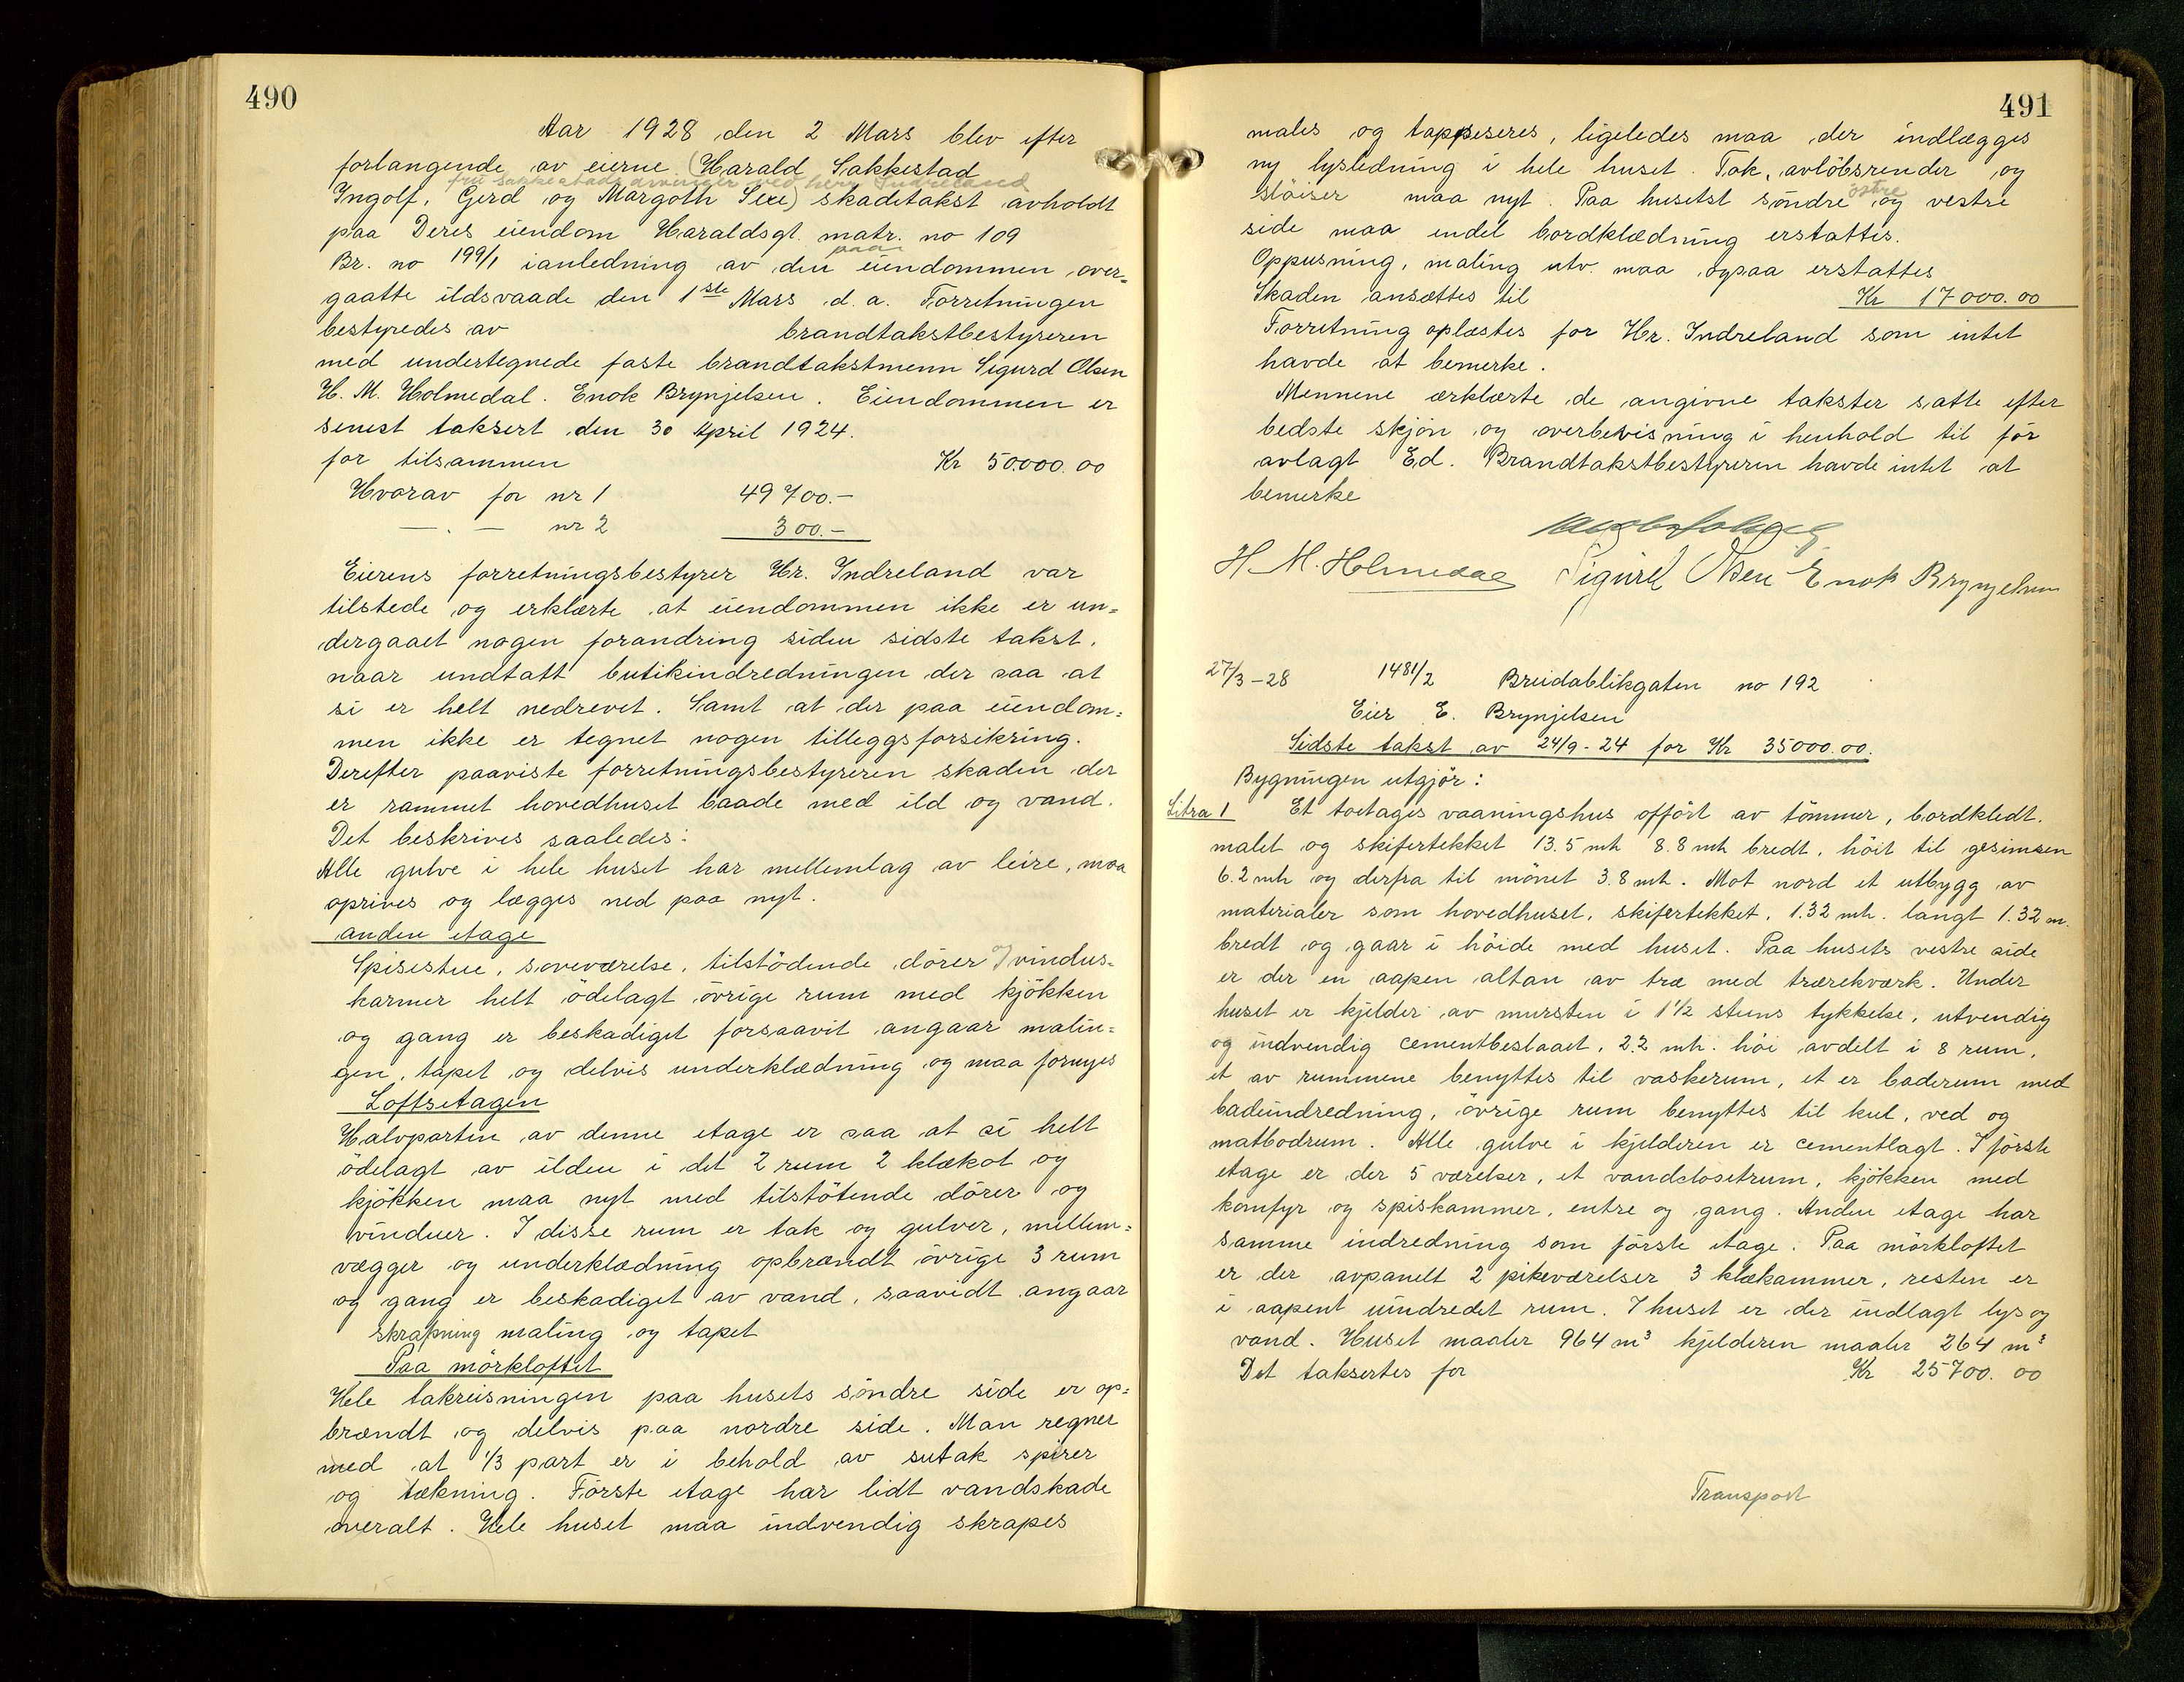 490
Aar 1928 den 2 Mars blev efter
forlangende av eierne (Harald Sakkestad
fru Sakkestads arvinger ved herr Indreland
Ingolf, Gerd og Margoth Sexe) skadetakst avholdt
paa Deres eiendom Haraldsgt. matr. no 109
paa
Br. no 199/1 ianledning av den eiendommen over=
gaatte ildsvaade den 1ste Mars d. a. Forretningen
bestyredes av brandtakstbestyreren
med undertegnede faste brandtakstmenn Sigurd Olsen
H. M. Holmedal. Enok Brynjelsen. Eiendommen er
senest taksert den 30 April 1924.
for tilsammen Kr 50000.00
Hvorav for nr 1 49700.-
— . — nr 2 300.-
Eierens forretningsbestyrer Hr. Indreland var
tilstede og erklærte at eiendommen ikke er un=
dergaaet nogen forandring siden sidste takst,
naar undtatt butikindredningen der saa at
si er helt nedrevet. Samt at der paa eiendom=
men ikke er tegnet nogen tilleggsforsikring.
Derefter paaviste forretningsbestyreren skaden der
er rammet hovedhuset baade med ild og vand.
Det beskrives saaledes:
Alle gulve i hele huset har mellemlag av leire, maa
oprives og lægges ned paa nyt.
anden etage
Spisestue, soveværelse, tilstödende dörer og vindus=
karmer helt ödelagt övrige rum med kjökken
og gang er beskadiget forsaavit angaar malin=
gen, tapet og delvis underklædning og maa fornyes
Loftsetagen
Halvparten av denne etage er saa at si helt
ödelagt av ilden i det 2 rum 2 klækot og
kjökken maa nyt med tilstötende dörer og
vinduer. I disse rum er tak og gulver, mellem=
vægger og underklædning opbrændt övrige 3 rum
og gang er beskadiget av vand, saavidt angaar
skrapning maling og tapet
Paa mörkloftet
Hele takreisningen paa husets söndre side er op=
brændt og delvis paa nordre side. Man regner
med at 1/3 part er i behold av sutak spirer
og tækning. Förste etage har lidt vandskade
overalt. Hele huset maa indvendig skrapes
491
males og tappseseres, ligeledes maa der indlægges
ny lysledning i hele huset. Tak, avlöbsrender og
östre
stöiser maa nyt. Paa husetst söndre og vestre
side maa endel bordklædning erstattes.
Oppusning, maling utv. maa ogsaa erstattes
Skaden ansættes til Kr 17000.00
Forretning oplæstes for Hr. Indreland som intet
havde at bemerke.
Mennene ærklærte de angivne takster satte efter
bedste skjön og overbevisning i henhold til för
avlagt Ed. Brandtakstbestyreren havde intet at
bemerke
H. M. Holmedal Sigurd Olsen Enok Brynjelsen
27/3-28 1481/2 Breidablikgaten no 192
Eier E. Brynjelsen
Sidste takst av 24/9-24 for Kr 35000.00.
Bygningen utgjör:
Litra 1 Et toetages vaaningshus offört av tömmer, bordkledt.
malet og skifertekket 13.5 mh 8.8 mh bredt, höit til gesimsen
6.2 mh og derfra til mönet 3.8 mh. Mot nord et utbygg av
materialer som hovedhuset, skifertekket, 1.32 mh. langt 1.32 m.
bredt og gaar i höide med huset. Paa husets vestre side
er der en aapen altan av træ med trærekværk. Under
huset er kjelder av mursten i 1 1/2 stens tykkelse, utvendig
og indvendig cementbeslaaet, 2.2 mh. höi avdelt i 8 rum,
et av rummene benyttes til vaskerum, et er baderum med
badeindredning, övrige rum benyttes til kul, ved og
matbodrum. Alle gulve i kjelderen er cementlagt. I förste
etage er der 5 værelser, et vandclosetrum, kjökken med
komfyr og spiskammer, entre og gang. Anden etage har
samme indredning som förste etage. Paa mörkloftet
er der avpanelt 2 pikeværelser 3 klækammer, resten er
i aapent uindredet rum. I huset er der indlagt lys og
vand. Huset maaler 964 m³ kjelderen maaler 264 m³
Det taksertes for Kr 25700.00
Transport